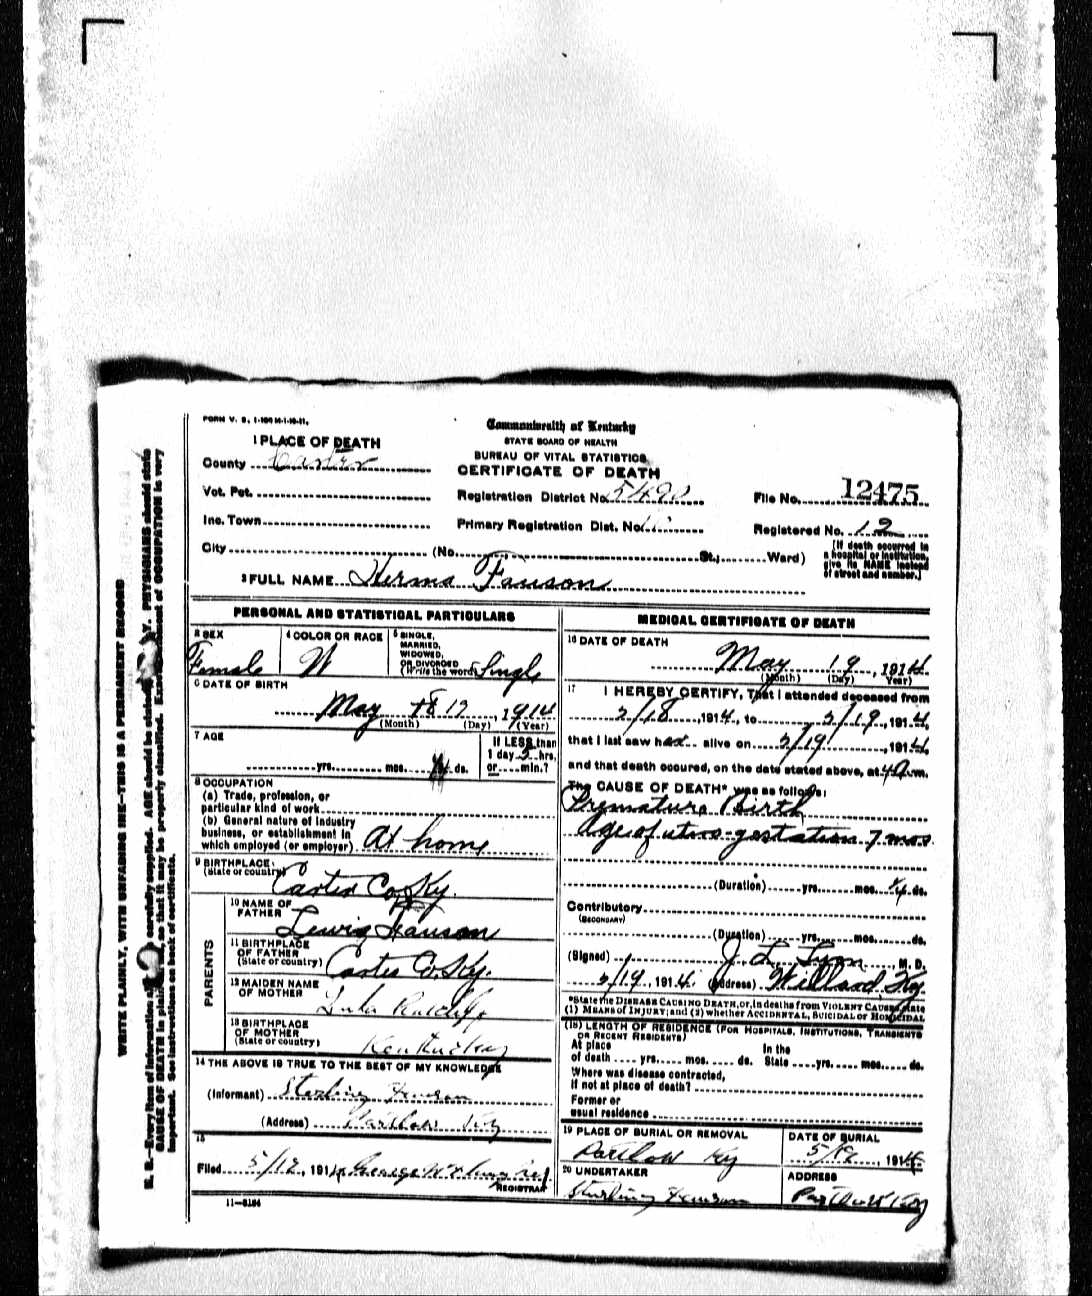 FORM V. S. 1-10M 11-1-10-11.
Commonwealth of Kentucky
STATE BOARD OF HEALTH
BUREAU OF VITAL STATISTICS
CERTIFICATE OF DEATH
1 PLACE OF DEATH
County Carter
Vot. Pct.
Registration District No. 5490
File No. 12475
Inc. Town
Primary Registration Dist. No.
Registered No. 12
City (No. St.; Ward)
(If death occurred in a hospital or institution, give its NAME instead of street and number.)
2 FULL NAME Herma Fauson
PERSONAL AND STATISTICAL PARTICULARS
3 SEX Female
4 COLOR OR RACE W
5 SINGLE, MARRIED, WIDOWED, OR DIVORCED (Write the word) Single
6 DATE OF BIRTH
May 18 , 1914
(Month) (Day) (Year)
7 AGE
yrs. mos. ds.
If LESS than 1 day hrs. or min.?
8 OCCUPATION
(a) Trade, profession, or particular kind of work
(b) General nature of industry business, or establishment in which employed (or employer) At home
9 BIRTHPLACE
(State or country) Carter Co Ky.
PARENTS
10 NAME OF FATHER Lewis Fauson
11 BIRTHPLACE OF FATHER
(State or country) Carter Co. Ky.
12 MAIDEN NAME OF MOTHER Lula Ratcliff
13 BIRTHPLACE OF MOTHER
(State or country) Kentucky
14 THE ABOVE IS TRUE TO THE BEST OF MY KNOWLEDGE
(Informant) Sterling
(Address) Partlow Ky
15
Filed 5/12, 1914 George W
REGISTRAR
11—5184
MEDICAL CERTIFICATE OF DEATH
16 DATE OF DEATH
May 19, 1914
(Month) (Day) (Year)
17 I HEREBY CERTIFY, That I attended deceased from
5/18, 1914, to 5/19, 1914,
that I last saw her alive on 5/19, 1914,
and that death occured, on the date stated above, at 4 a.m.
The CAUSE OF DEATH* was as follows:
Premature Birth
Age of utero-gestation 7 mos
(Duration) yrs. mos. ds.
Contributory
(SECONDARY)
(Duration) yrs. mos. ds.
(Signed) J. L. Lyon, M. D.
5/19, 1914. (Address) Willard, Ky.
*State the DISEASE CAUSING DEATH, or, in deaths from VIOLENT CAUSES, state
(1) MEANS OF INJURY; and (2) whether ACCIDENTAL, SUICIDAL or HOMICIDAL
(18) LENGTH OF RESIDENCE (FOR HOSPITALS, INSTITUTIONS, TRANSIENTS OR RECENT RESIDENTS)
At place of death yrs. mos. ds. In the State yrs. mos. ds.
Where was disease contracted,
if not at place of death?
Former or
usual residence
19 PLACE OF BURIAL OR REMOVAL
Partlow Ky
DATE OF BURIAL
1914
20 UNDERTAKER
Sterling
ADDRESS
Partlow Ky
WRITE PLAINLY, WITH UNFADING INK—THIS IS A PERMANENT RECORD
N. B.—Every item of information carefully supplied. AGE should be stated PHYSICIANS should state
CAUSE OF DEATH in plain so that it may be properly classified. of OCCUPATION is very
important. See instructions on back of certificate.